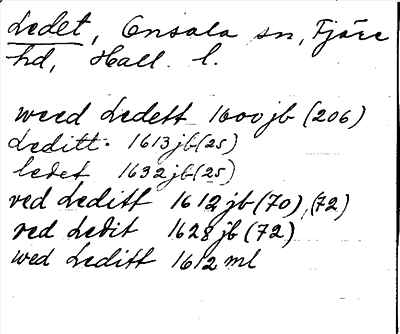 Ledet, Onsala sn, Fjäre
hd, Hall. l.
weed Ledett 1600 jb (206)
Leditt. 1613 jb (25)
ledet 1632 jb (25)
ved Leditt 1612 jb (70), (72)
ved Ledit 1628 jb (72)
wed Leditt 1612 ml